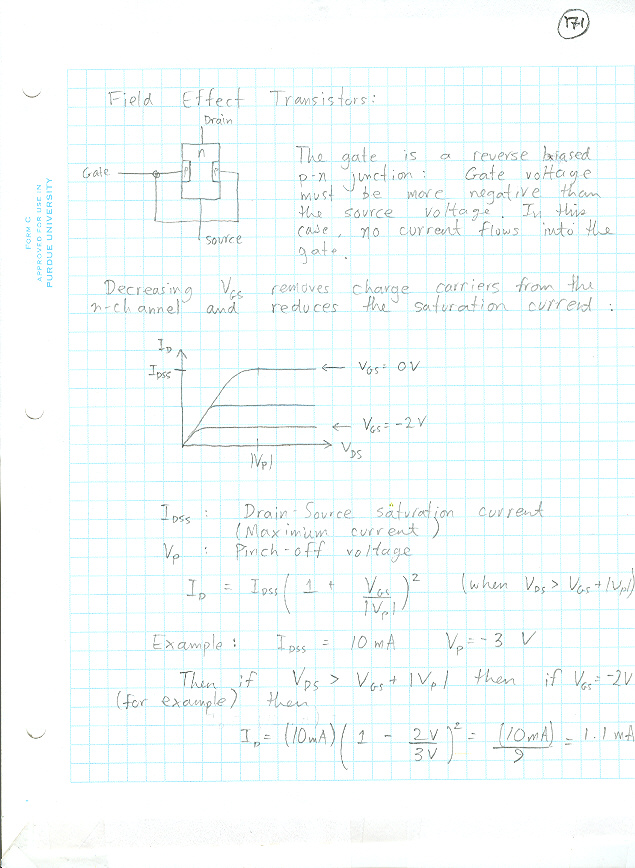 171
FORM C
APPROVED FOR USE IN
PURDUE UNIVERSITY
Field Effect Transistors:
Drain
n
Gate
P
P
source
The gate is a reverse biased
p-n junction: Gate voltage
must be more negative than
the source voltage. In this
case, no current flows into the
gate.
Decreasing V_GS removes charge carriers from the
n-channel and reduces the saturation current:
I_D
I_DSS
V_GS = 0V
V_GS = -2V
V_DS
|V_P|
I_DSS : Drain-Source saturation current
(Maximum current)
V_P : Pinch-off voltage
I_D = I_DSS ( 1 + V_GS / |V_P| )² (when V_DS > V_GS + |V_P|)
Example: I_DSS = 10 mA V_P = -3 V
Then if V_DS > V_GS + |V_P| then if V_GS = -2V
(for example) then
I_D = (10mA) ( 1 - 2V / 3V )² = (10mA) / 9 = 1.1 mA